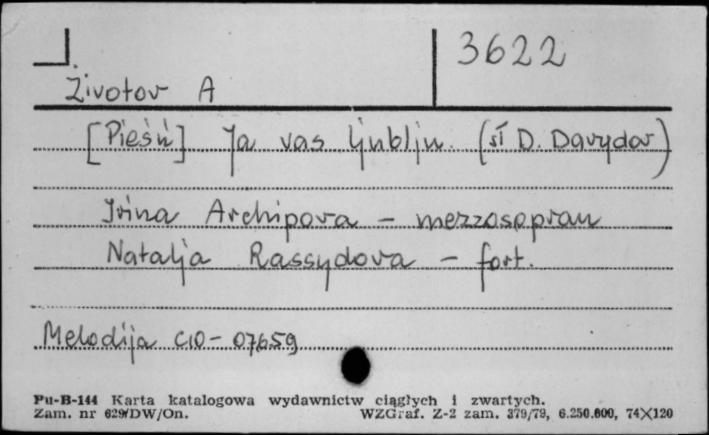 3622
Životov A
[Pieśń] Ja vas ljublju. (sł D. Davydov)
Irina Archipova - mezzosopran
Natalja Rassydova - fort.
Melodija C10-07659
Pu-B-144 Karta katalogowa wydawnictw ciągłych i zwartych.
Zam. nr 629/DW/On. WZGraf. Z-2 zam. 379/79, 6.250.000, 74X120